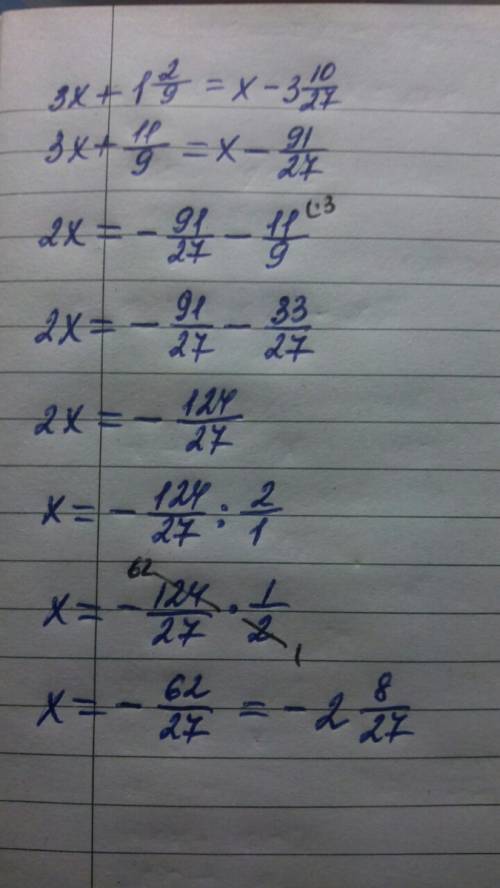 3x + 1 2/9 = x - 3 10/27
3x + 11/9 = x - 91/27
2x = - 91/27 - 11/9 (·3
2x = - 91/27 - 33/27
2x = - 124/27
x = - 124/27 : 2/1
x = - 62 124/27 · 1/2 1
x = - 62/27 = - 2 8/27